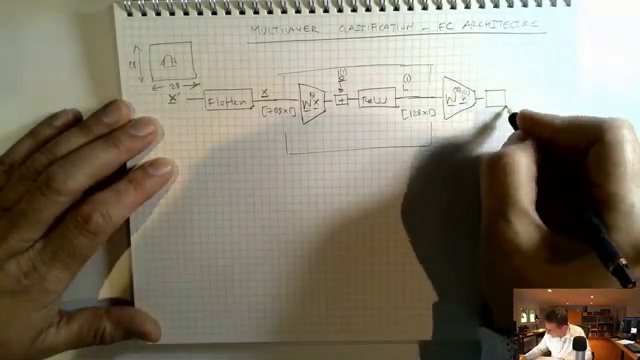 MULTILAYER CLASSIFICATION - FC ARCHITECTURE
28
28
x'
Flatten
x
[768x1]
W x
b(1)
+
ReLU
h(1)
[128x1]
W(2) h(1)